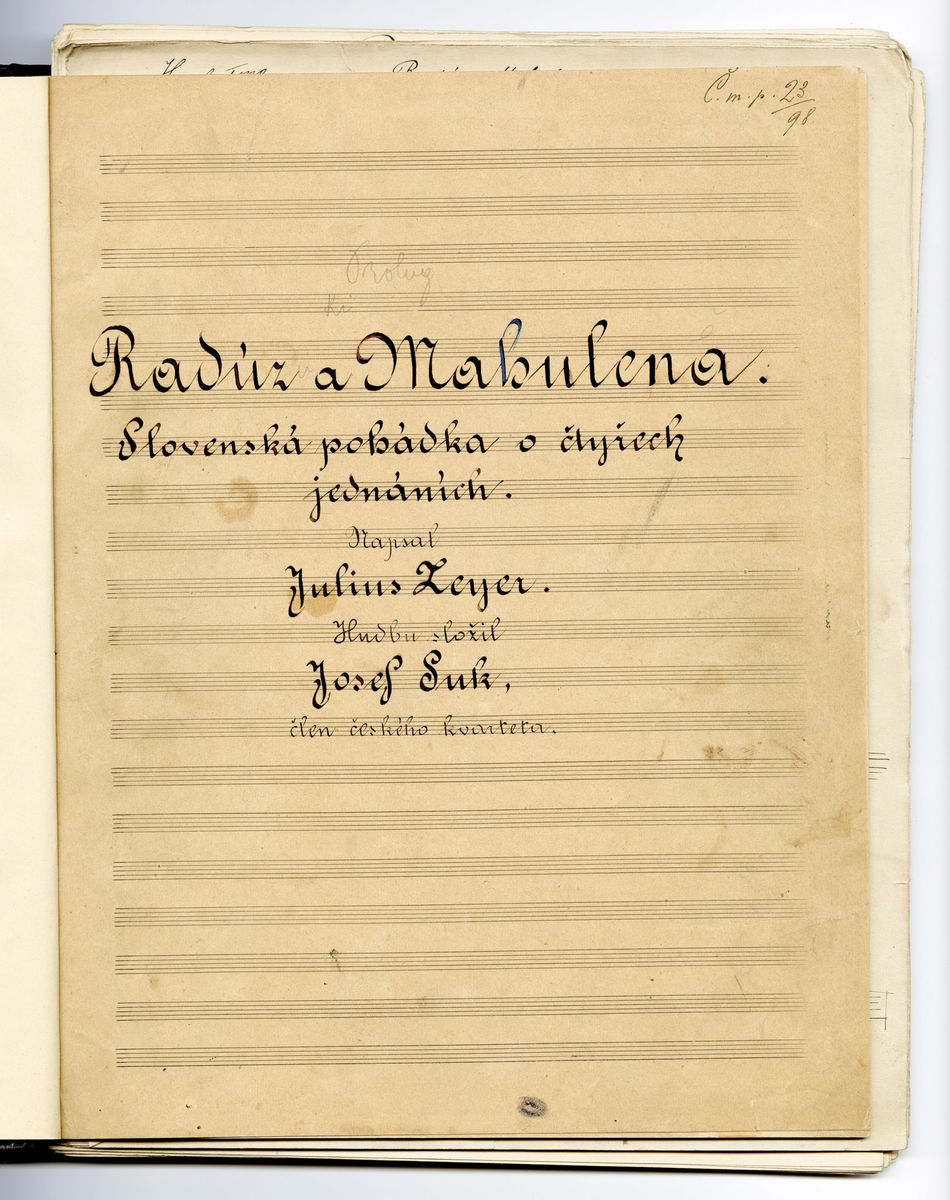 Č. m. p. 23/98
Prolog
Radúz a Mahulena.
Slovenská pohádka o čtyřech
jednáních.
Napsal
Julius Zeyer.
Hudbu složil
Josef Suk,
člen českého kvarteta.